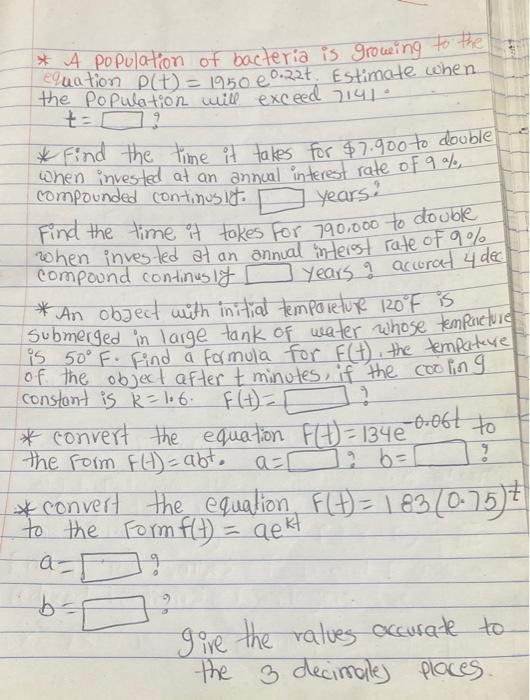 * A population of bacteria is growing to the
equation P(t) = 1950 e^0.22t. Estimate when
the Population will exceed 7141.
t = ?
* Find the time it takes for $7.900 to double
when invested at an annual interest rate of 9%,
compounded continusly. years?
Find the time it takes for 790,000 to double
when invested at an annual interest rate of 9%
compound continusly years ? accurat 4 dec
* An object with initial temparetur 120°F is
submerged in large tank of water whose tempareture
is 50° F. Find a formula for F(t), the tempateure
of the object after t minutes, if the cooling
constant is k = 1.6. F(t) = ?
* convert the equation F(t) = 134e^-0.06t to
the Form F(t) = abt. a = ? b = ?
* convert the equation F(t) = 183(0.75)^t
to the Form f(t) = ae^kt
a = ?
b = ?
give the values accurate to
the 3 decimales places.